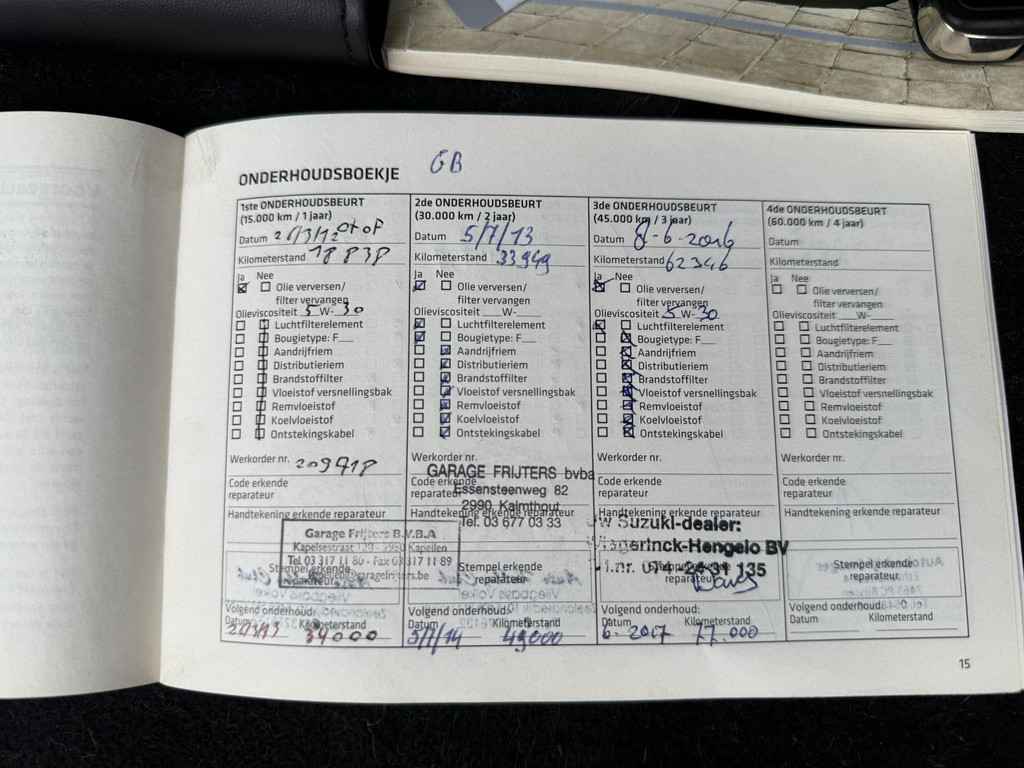 GB
ONDERHOUDSBOEKJE
1ste ONDERHOUDSBEURT
(15.000 km / 1 jaar)
Datum
Kilometerstand 18838
Ja Nee
Olie verversen/
filter vervangen
Olieviscositeit 5 W- 30
Luchtfilterelement
Bougietype: F
Aandrijfriem
Distributieriem
Brandstoffilter
Vloeistof versnellingsbak
Remvloeistof
Koelvloeistof
Ontstekingskabel
Werkorder nr. 209718
Code erkende
reparateur
Handtekening erkende reparateur
Garage Frijters B.V.B.A
Kapelsestraat 120 - 2950 Kapellen
Tel 03 317 11 80 - Fax 03 317 11 89
Stempel erkende
reparateur
Volgend onderhoud:
Datum Kilometerstand
34000
2de ONDERHOUDSBEURT
(30.000 km / 2 jaar)
Datum 5/7/13
Kilometerstand 33949
Ja Nee
Olie verversen/
filter vervangen
Olieviscositeit W-
Luchtfilterelement
Bougietype: F
Aandrijfriem
Distributieriem
Brandstoffilter
Vloeistof versnellingsbak
Remvloeistof
Koelvloeistof
Ontstekingskabel
Werkorder nr.
GARAGE FRIJTERS bvba
Code erkende
reparateur
Essensteenweg 82
2990 Kalmthout
Handtekening erkende reparateur
Tel. 03 677 03 33
Stempel erkende
reparateur
Volgend onderhoud:
Datum Kilometerstand
5/7/14 49000
3de ONDERHOUDSBEURT
(45.000 km / 3 jaar)
Datum 8-6-2016
Kilometerstand 62346
Ja Nee
Olie verversen/
filter vervangen
Olieviscositeit 5 W- 30
Luchtfilterelement
Bougietype: F
Aandrijfriem
Distributieriem
Brandstoffilter
Vloeistof versnellingsbak
Remvloeistof
Koelvloeistof
Ontstekingskabel
Werkorder nr.
Code erkende
reparateur
Handtekening erkende reparateur
Uw Suzuki-dealer:
Wagerinck-Hengelo BV
Stempel erkende
reparateur
Volgend onderhoud:
Datum Kilometerstand
6. 2017 77.000
4de ONDERHOUDSBEURT
(60.000 km / 4 jaar)
Datum
Kilometerstand
Ja Nee
Olie verversen/
filter vervangen
Olieviscositeit W-
Luchtfilterelement
Bougietype: F
Aandrijfriem
Distributieriem
Brandstoffilter
Vloeistof versnellingsbak
Remvloeistof
Koelvloeistof
Ontstekingskabel
Werkorder nr.
Code erkende
reparateur
Handtekening erkende reparateur
Stempel erkende
reparateur
Volgend onderhoud:
Datum Kilometerstand
15